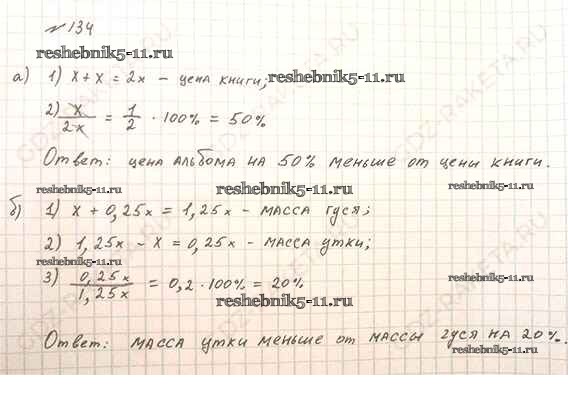 № 134
reshebnik5-11.ru
а) 1) x + x = 2x – цена книги; reshebnik5-11.ru
2) x/2x = 1/2 · 100% = 50%
Ответ: цена альбома на 50% меньше от цены книги.
reshebnik5-11.ru reshebnik5-11.ru reshebnik5-11.ru
б) 1) x + 0,25x = 1,25x – масса гуся;
2) 1,25x – x = 0,25x – масса утки;
reshebnik5-11.ru
3) 0,25x/1,25x = 0,2 · 100% = 20%
reshebnik5-11.ru
reshebnik5-11.ru
Ответ: масса утки меньше от массы гуся на 20%.
reshebnik5-11.ru
GDZ-RAKETA.RU
GDZ-RAKETA.RU
GDZ-RAKETA.RU
GDZ-RAKETA.RU